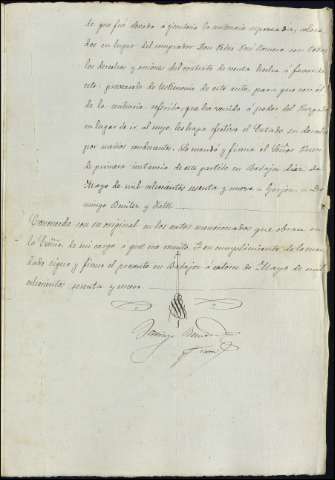 de que fué dictada y ejecutoria la sentencia espresada, coloca
dos en lugar del comprador Don Pedro José Romero con todos
los derechos y acciones del espediente de venta hecha á favor de
este; proveyendo de testimonio de este auto, para que con el
de la sentencia referida que ha venido á poder del Juzgado
en lugar de ir al suyo les haga efectivo el Estado su derecho
por medios conducentes. Lo mandó y firma el Señor Juez
de primera instancia de este partido en Badajoz diez de
Mayo de mil ochocientos sesenta y nueve = Garzon = Do
mingo Benitez y
Concuerda con su original en los autos mencionados que obran en
la Escría de mi cargo á que me remito. Y en cumplimiento de lo man
dado signo y firmo el presente en Badajoz á catorce de Mayo de mil
ochocientos sesenta y nueve
Domingo Benitez